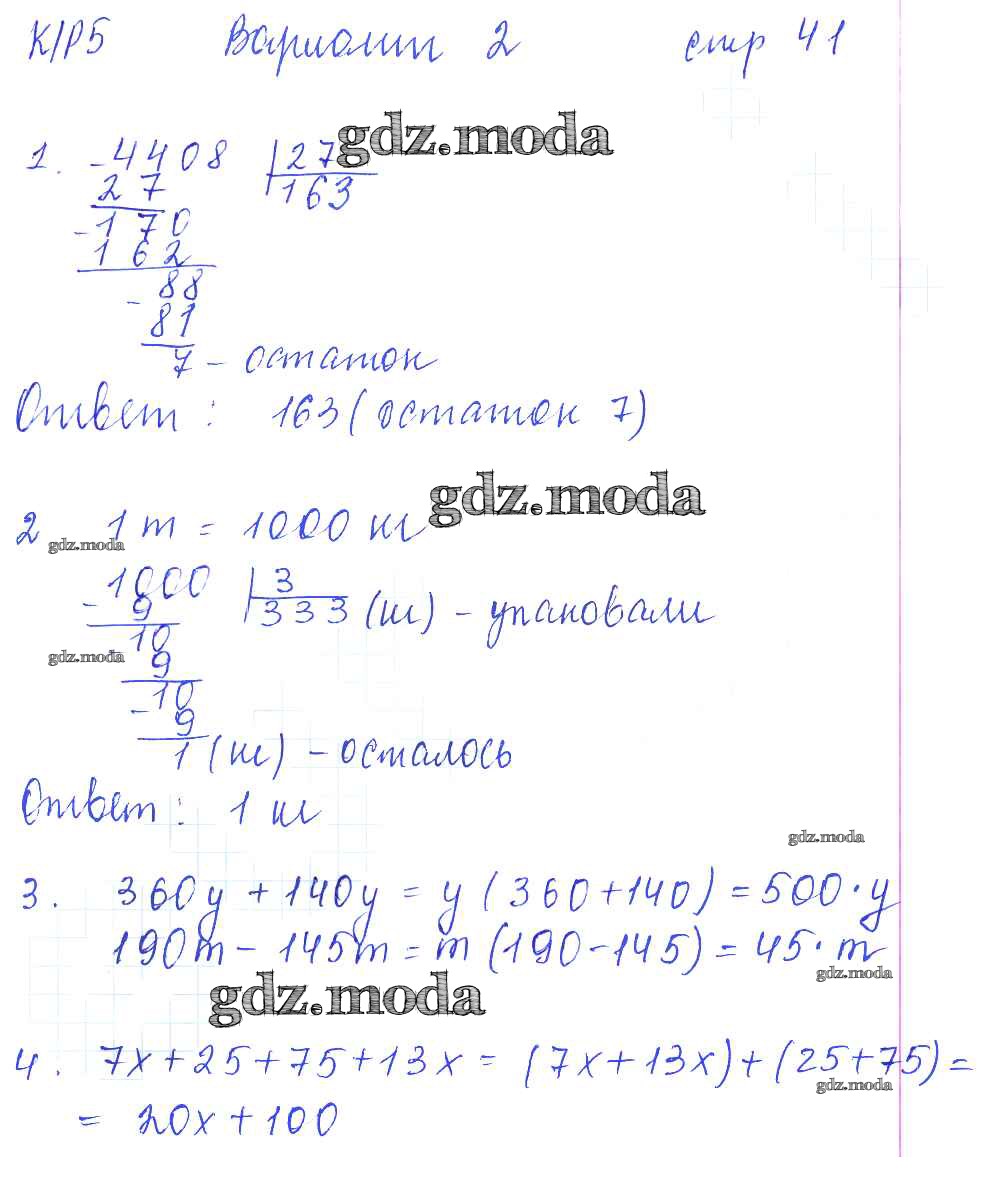 К/Р5 Вариант 2 стр 41
gdz.moda
1. -4408 |27
27 163
-170
162
-88
81
7 - остаток
Ответ: 163 (остаток 7)
gdz.moda
2 1 т = 1000 кг
gdz.moda
1000 |3
- 9 333 (кг) - упаковали
-10
gdz.moda
9
-10
9
1 (кг) - осталось
Ответ: 1 кг
gdz.moda
3. 360y + 140y = y (360+140) = 500·y
190m - 145m = m (190-145) = 45·m
gdz.moda
gdz.moda
4. 7x+25+75+13x = (7x+13x)+(25+75)=
gdz.moda
= 20x+100